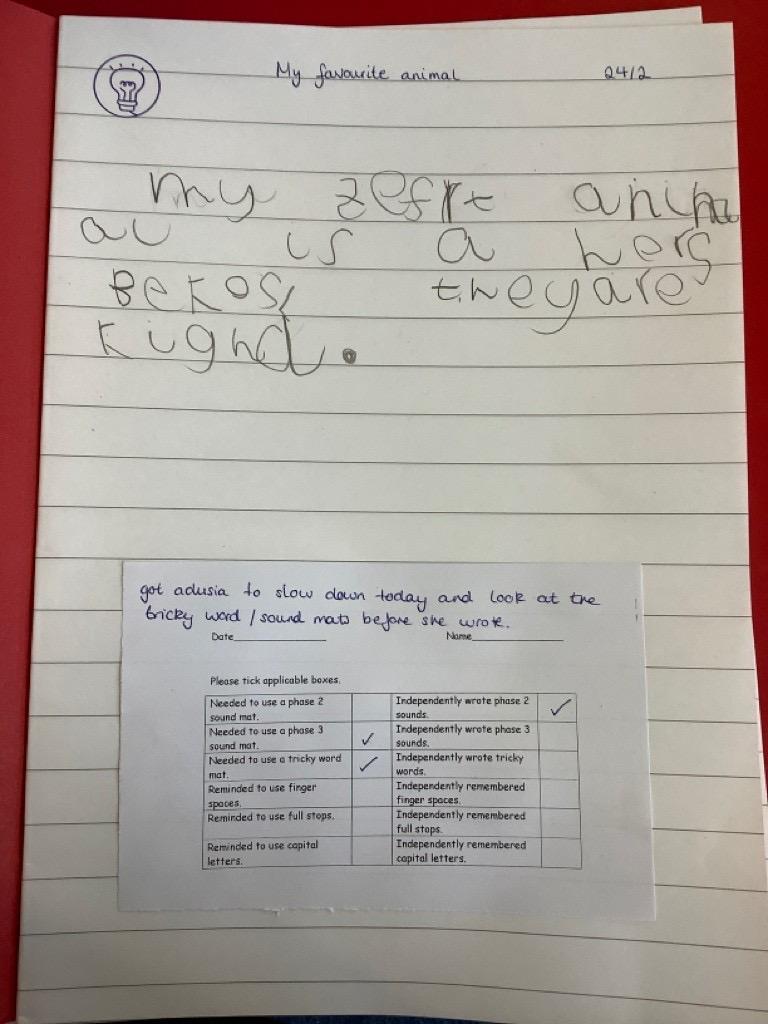 My favourite animal 24/2
my zefrt anima
al is a hers
BeKos they are
Kighd.
got adusia to slow down today and look at the
tricky word / sound mats before she wrote.
Date____________ Name____________
Please tick applicable boxes.
Needed to use a phase 2 sound mat. Independently wrote phase 2 sounds. ✓
Needed to use a phase 3 sound mat. ✓ Independently wrote phase 3 sounds.
Needed to use a tricky word mat. ✓ Independently wrote tricky words.
Reminded to use finger spaces. Independently remembered finger spaces.
Reminded to use full stops. Independently remembered full stops.
Reminded to use capital letters. Independently remembered capital letters.